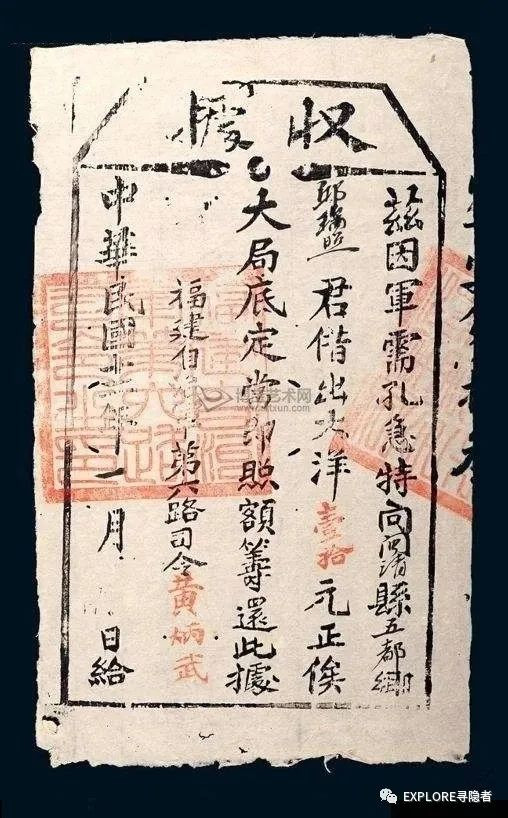 收據
茲因軍需孔急特向閩清縣五都鄉
邱瑞照君借出大洋壹拾元正俟
大局底定當即照額籌還此據
福建自治軍第六路司令黃炳武
中華民國十二年一月 日給
EXPLORE寻隐者